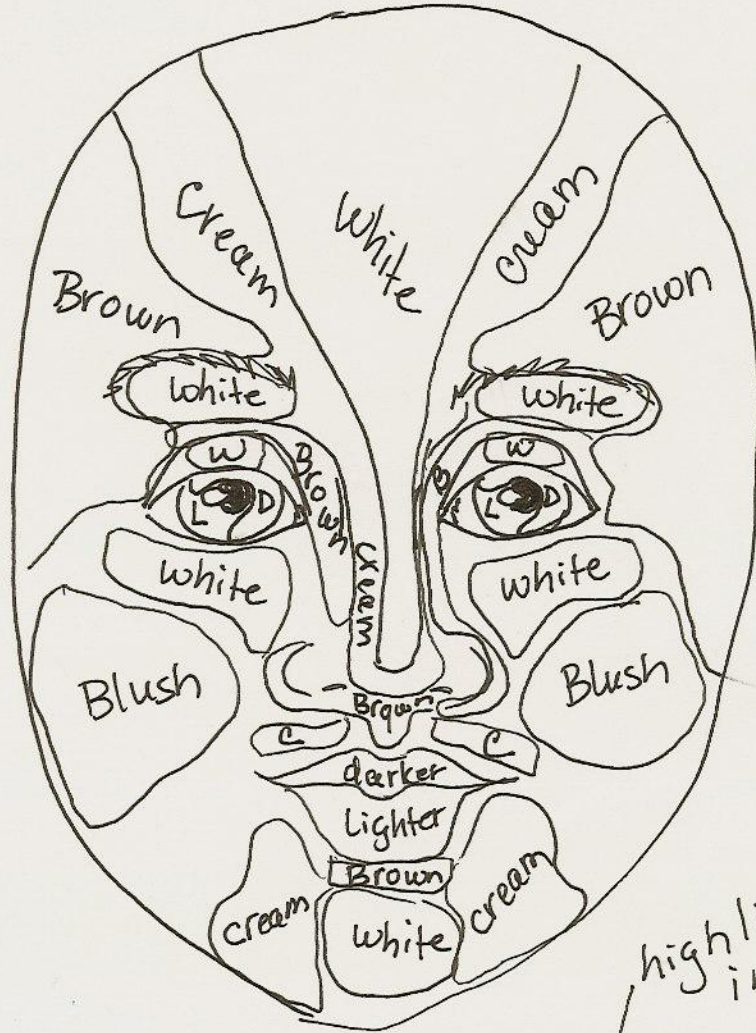 Cream
White
Cream
Brown
Brown
White
White
W
W
Brown
B
L
D
L
D
White
White
Cream
Blush
Blush
Brown
C
C
darker
Lighter
Brown
cream
White
cream